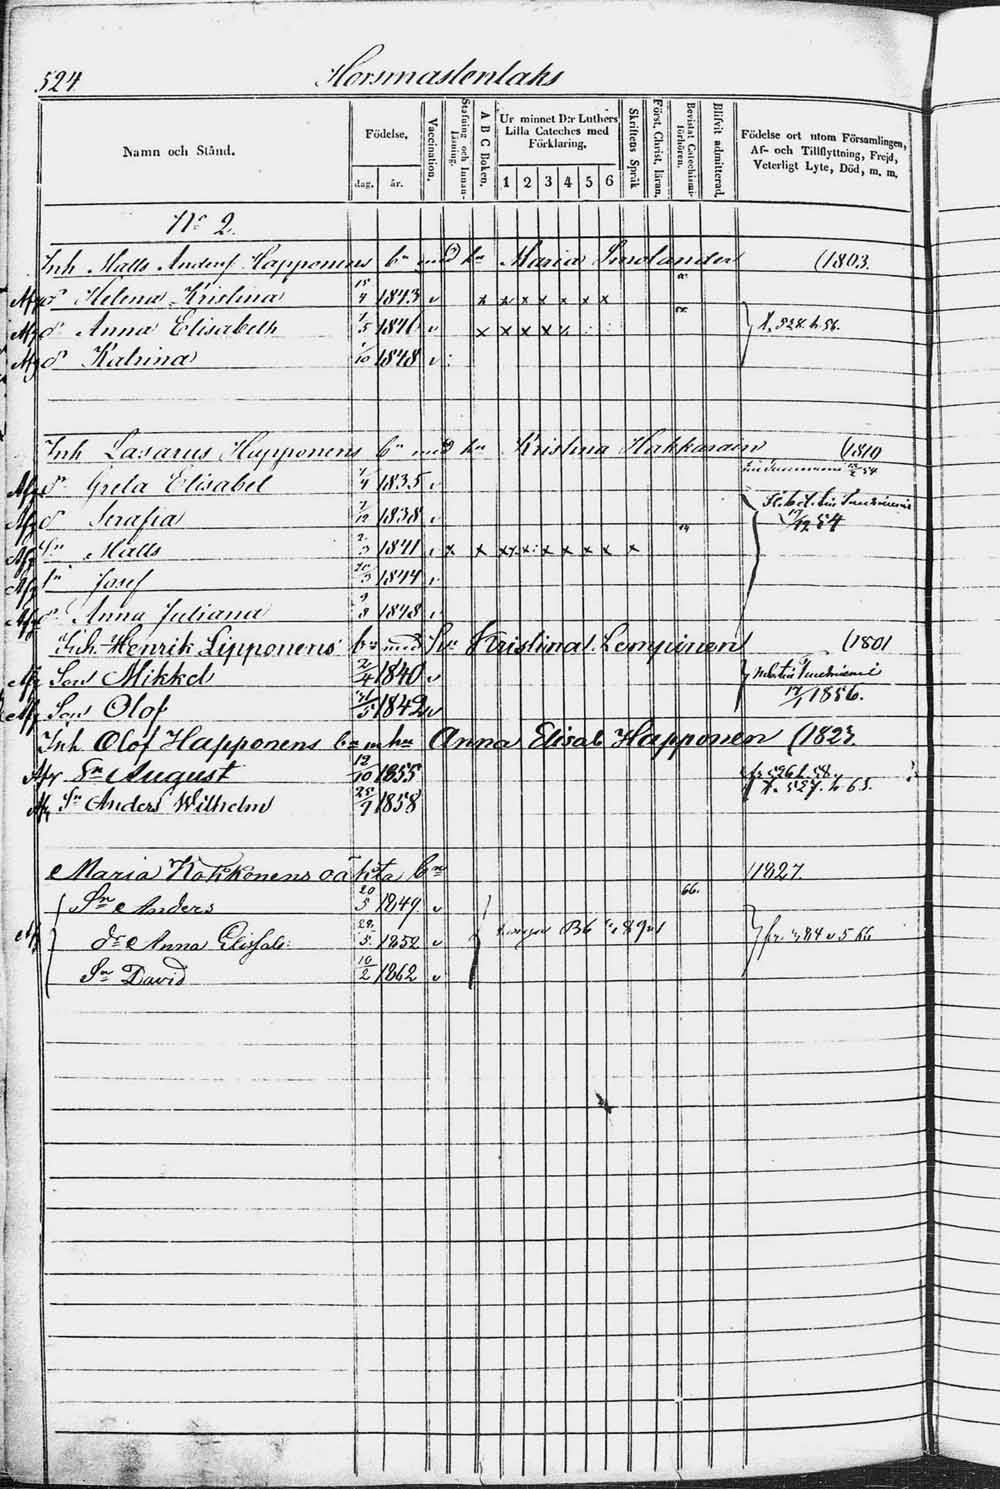 524 Horsmastenlaks
Namn och Stånd. Födelse, dag. år. Vaccination. Stafning och Innanläsning. A B C Boken. Ur minnet D:r Luthers Lilla Cateches med Förklaring. 1 2 3 4 5 6 Skriftens Språk Först. Christ. läran. Bevistat Catechismiförhören. Blifvit admitterad. Födelse ort utom Församlingen, Af- och Tillflyttning, Frejd, Veterligt Lyte, Död, m. m.
No 2.
Inh Matts Andersf Happonens bn med hu Maria Smolander (1803.
Afg dr Helena Kristina 15/4 1843 v x x x x x x x
Afg dr Anna Elisabeth 1/5 1846 v x x x x x
Afg dr Katrina 1/10 1848 v
Inh Lasarus Happonens bn med hu Kristina Hakkarain (1810
Afg dr Greta Elisabet 1/4 1835 v
Afg dr Serafia 2/12 1838 v 17/12 54
Afg Sn Matts 2/3 1841 v x x x x x x x x x x
Afg Sn Josef 20/3 1844 v
Afg dr Anna Juliana 9/8 1848 v
Inh Henrik Lipponens bn med hu Kristina Lempinen (1801
Afg Son Mikkel 2/4 1840 v
Afg Son Olof 31/5 1842 v 17/1 1856.
Inh Olof Happonens bn m hu Anna Elisab Happonen (1823.
Afg Sn August 12/10 1855 fr 526 h 58.
Afg Sn Anders Wilhelm 25/7 1858 527. h 63.
Maria Kokkonens oäkta bn 1827.
Sn Anders 20/5 1849 v 66.
Afg dr Anna Elisab: 29/5 1852 v
Sn David 10/2 1862 v